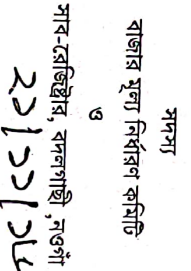 সদস্য
বাজার মূল্য নির্ধারণ কমিটি
ও
সাব-রেজিষ্ট্রার, বদলগাছী, নওগাঁ
২১/১১/১৮